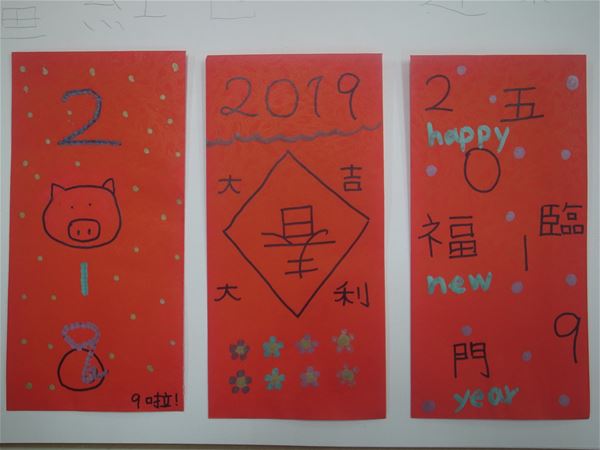 2
1
9啦!
2019
大 吉
春
大 利
2 五
happy
0
福 臨
1
new
9
門
year